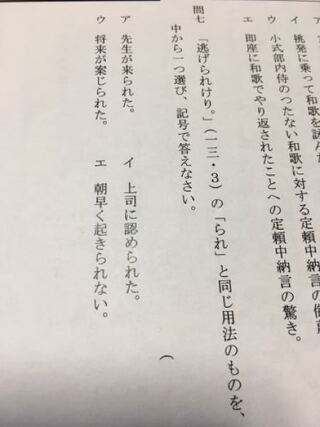 イ 挑発に乗って和歌を読んだ
ウ 小式部内侍のつたない和歌に対する定頼中納言の
エ 即座に和歌でやり返されたことへの定頼中納言の驚き。
問七 「逃げられけり。」(一三・3)の「られ」と同じ用法のものを、
中から一つ選び、記号で答えなさい。
(
ア 先生が来られた。 イ 上司に認められた。
ウ 将来が案じられた。 エ 朝早く起きられない。